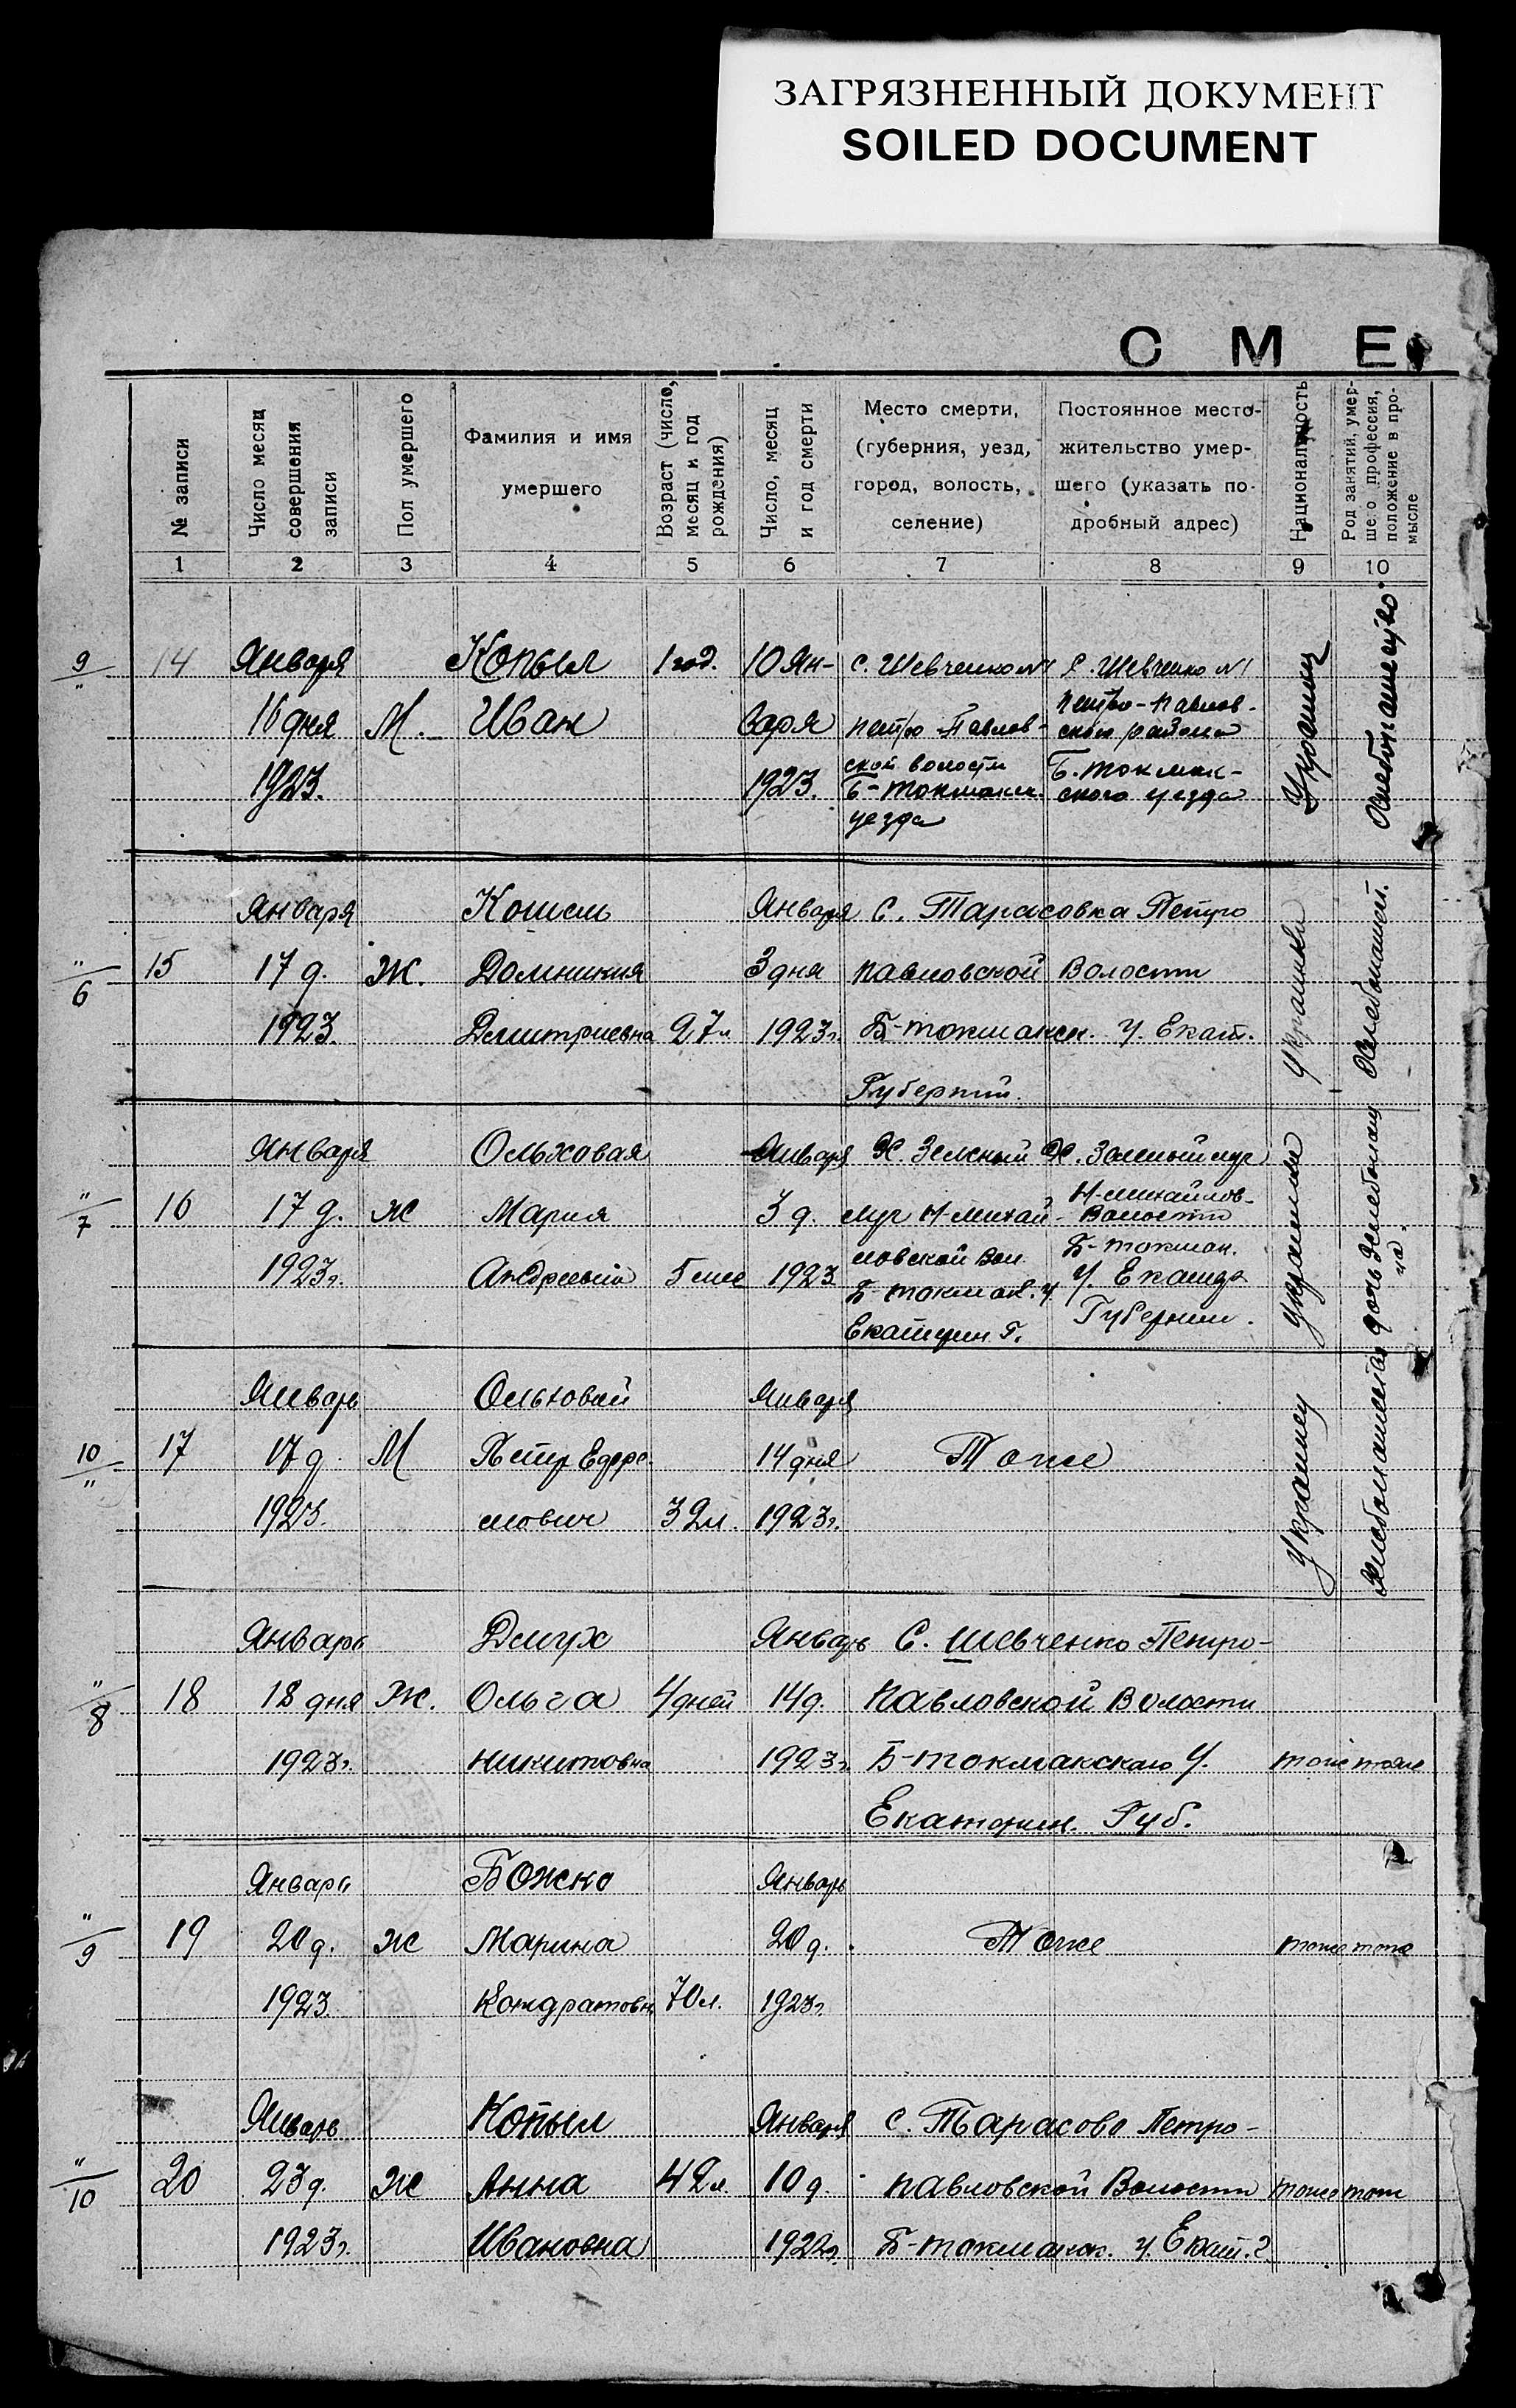 ЗАГРЯЗНЕННЫЙ ДОКУМЕНТ
SOILED DOCUMENT
С М Е
№ записи
Число месяц совершения записи
Пол умершего
Фамилия и имя умершего
Возраст (число, месяц и год рождения)
Число, месяц и год смерти
Место смерти, (губерния, уезд, город, волость, селение)
Постоянное местожительство умершего (указать подробный адрес)
Национальность
Род занятий, умершего профессия, положение в промысле
1 2 3 4 5 6 7 8 9 10
9/"
14
Января
16 дня
1923.
М.
Копыл
Иван
1 год.
10 Ян-
варя
1923.
с. Шевченко №1
петро-Павлов-
ской волости
Б-Токмакск.
уезда
с. Шевченко №1
Петро-Павлов-
ского района
Б. Токмак-
ского уезда
Украинец
"/6
15
Января
17 д.
1923.
Ж.
Домникия
Дмитриевна
27 л
Января
3 дня
1923 г.
С. Тарасовка Петро
павловской Волости
Б-токмакск. у. Екат.
Губернии.
Украинка
Хлебопашец.
"/7
16
Января
17 д.
1923 г.
Ж
Ольховая
Мария
Января
3 д.
1923
Х. Зеленый
луг Н-Михай-
ловской Вол.
Б-токмак. у.
Екатерин. Г.
Х. Зеленый луг
Н-Михайлов-
Волости
Б-токмак.
У. Екатер
Губернии.
дочь хлебопашца.
10/"
17
Январь
17 д
1923.
М
Ольховой
Петр
32 л.
Января
14 дня
1923 г.
Тоже
Украинец
"/8
18
Января
18 дня
1923 г.
Ж.
Дмух
Ольга
Никитовна
4 дней
Январь
14 д.
1923 г.
С. Шевченко Петро-
павловской Волости
Б-токмакскаго У.
Екатерин. Губ.
тоже тоже
"/9
19
Января
20 д.
1923.
Ж
Божко
Марина
Кондратовн
70 л.
Январь
20 д.
1923 г.
Тоже
тоже тоже
"/10
20
Январь
23 д.
1923 г.
Ж
Копыл
Анна
Ивановна
42 л
Января
10 д.
1922 г.
с. Тарасово Петро-
павловской Волости
Б-токмакск. у. Екат. Г.
тоже тоже